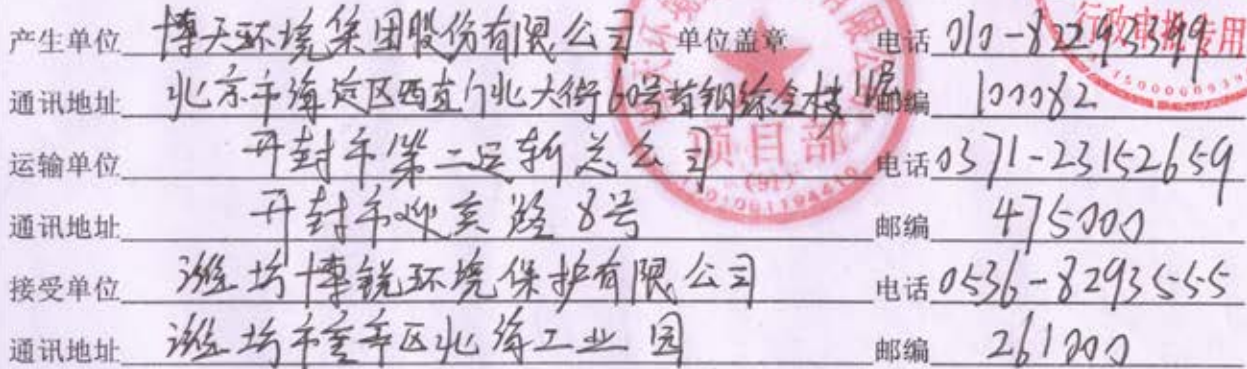 产生单位 博天环境集团股份有限公司 单位盖章 电话 010-82293399
通讯地址 北京市海淀区西直门北大街60号首钢综合楼 邮编 100082
运输单位 开封市第二运输总公司 电话 0371-23152659
通讯地址 开封市迎宾路8号 邮编 475000
接受单位 潍坊博锐环境保护有限公司 电话 0536-8293555
通讯地址 潍坊市奎文区北 工业园 邮编 261000
行政审批专用
项目部
(91)